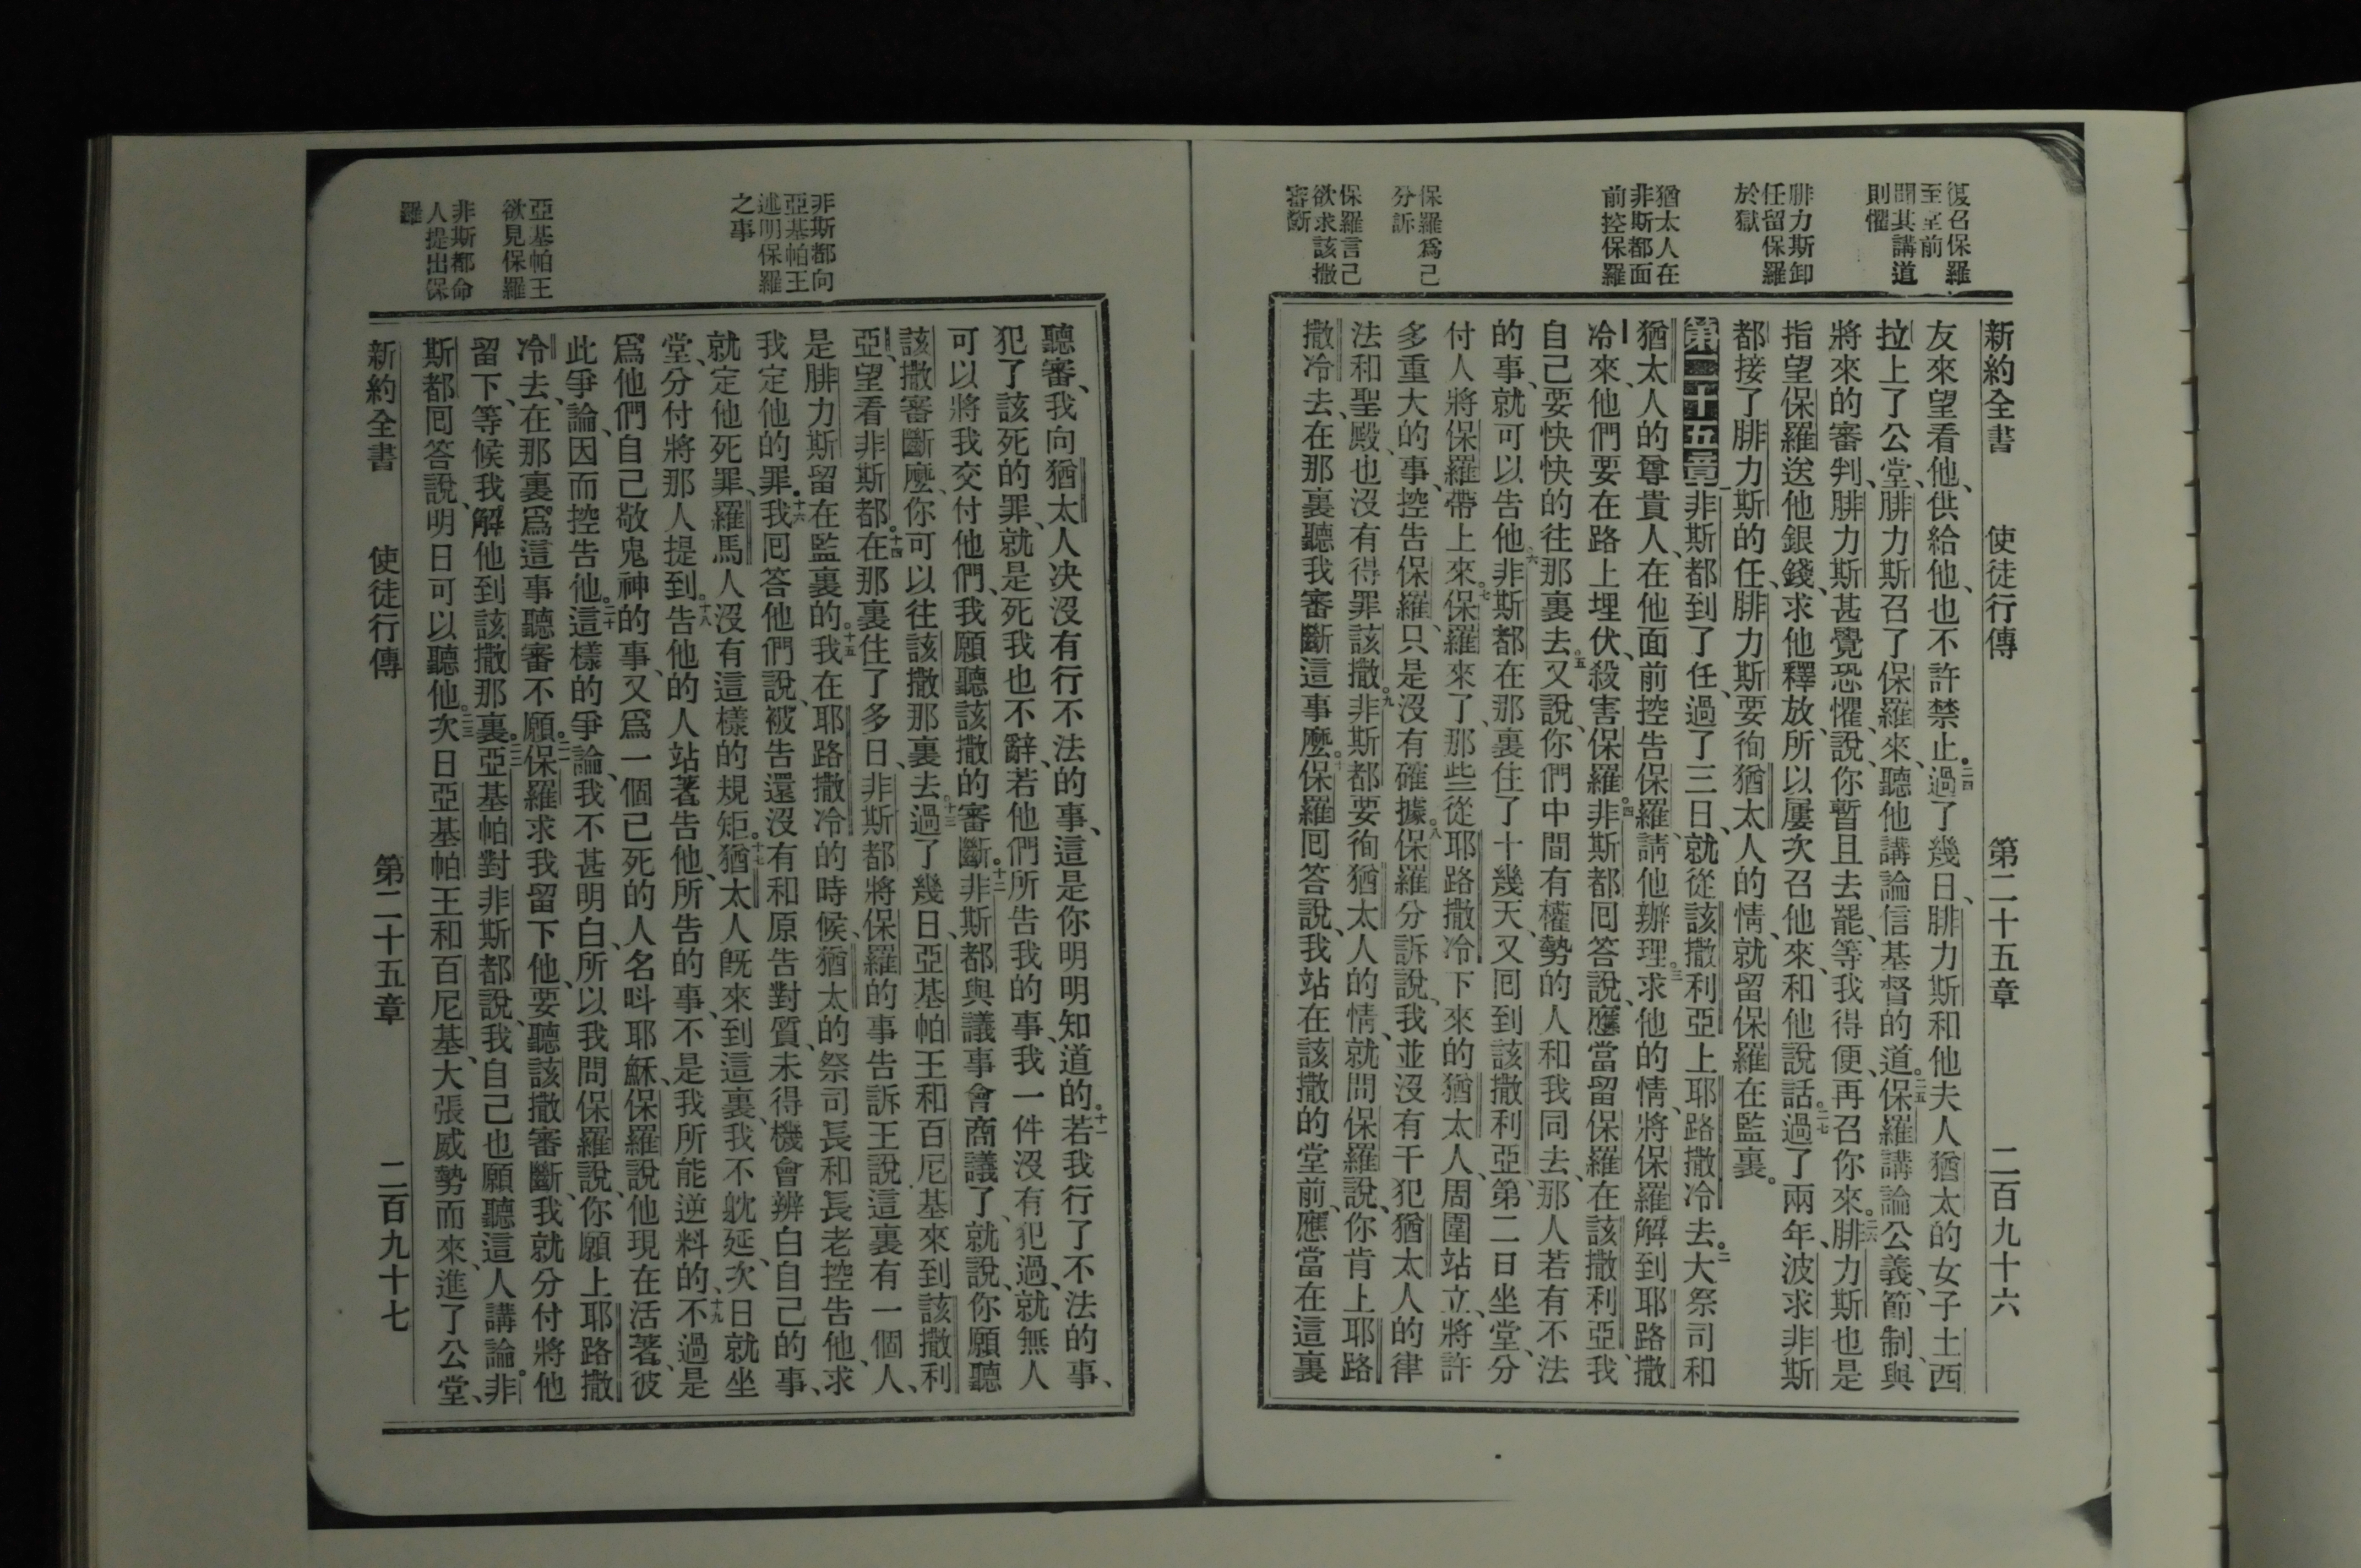 復召保羅
至堂前
聞其講道
則懼
腓力斯卸
任留保羅
於獄
猶太人在
非斯都面
前控保羅
保羅爲己
分訴
保羅言己
欲求該撒
審斷
新約全書 使徒行傳 第二十五章 二百九十六
友來望看他、供給他、也不許禁止。二四過了幾日、腓力斯和他夫人猶太的女子土西
拉上了公堂、腓力斯召了保羅來、聽他講論信基督的道。二五保羅講論公義、節制、與
將來的審判、腓力斯甚覺恐懼、說、你暫且去罷、等我得便、再召你來。二六腓力斯也是
指望保羅送他銀錢、求他釋放、所以屢次召他來、和他說話。二七過了兩年、波求非斯
都接了腓力斯的任、腓力斯要徇猶太人的情、就留保羅在監裏。
第二十五章一非斯都到了任、過了三日、就從該撒利亞上耶路撒冷去。二大祭司和
猶太人的尊貴人、在他面前控告保羅、請他辦理。三求他的情、將保羅解到耶路撒
冷來、他們要在路上埋伏、殺害保羅。四非斯都回答說、應當留保羅在該撒利亞、我
自己要快快的往那裏去。五又說、你們中間有權勢的人和我同去、那人若有不法
的事、就可以告他。六非斯都在那裏住了十幾天、又回到該撒利亞、第二日坐堂、分
付人將保羅帶上來。七保羅來了、那些從耶路撒冷下來的猶太人、周圍站立、將許
多重大的事、控告保羅、只是沒有確據。八保羅分訴說、我並沒有干犯猶太人的律
法和聖殿、也沒有得罪該撒。九非斯都要徇猶太人的情、就問保羅說、你肯上耶路
撒冷去、在那裏聽我審斷這事麼。十保羅回答說、我站在該撒的堂前、應當在這裏
非斯都向
亞基帕王
述明保羅
之事
亞基帕王
欲見保羅
非斯都命
人提出保
羅
聽審、我向猶太人決沒有行不法的事、這是你明明知道的。十一若我行了不法的事、
犯了該死的罪、就是死我也不辭、若他們所告我的事、我一件沒有犯過、就無人
可以將我交付他們、我願聽該撒的審斷。十二非斯都與議事會商議了、就說、你願聽
該撒審斷麼、你可以往該撒那裏去。十三過了幾日、亞基帕王和百尼基來到該撒利
亞、望看非斯都。十四在那裏住了多日、非斯都將保羅的事告訴王說、這裏有一個人、
是腓力斯留在監裏的。十五我在耶路撒冷的時候、猶太的祭司長和長老控告他、求
我定他的罪。十六我回答他們說、被告還沒有和原告對質、未得機會辨白自己的事、
就定他死罪、羅馬人沒有這樣的規矩。十七猶太人旣來到這裏、我不躭延、次日就坐
堂、分付將那人提到。十八告他的人站著告他、所告的事、不是我所能逆料的、十九不過是
爲他們自己敬鬼神的事、又爲一個已死的人名呌耶穌、保羅說他現在活著、彼
此爭論、因而控告他。二十這樣的爭論、我不甚明白、所以我問保羅說、你願上耶路撒
冷去、在那裏爲這事聽審不願。二一保羅求我留下他、要聽該撒審斷、我就分付將他
留下、等候我解他到該撒那裏。二二亞基帕對非斯都說、我自己也願聽這人講論。非
斯都回答說、明日可以聽他。二三次日亞基帕王和百尼基、大張威勢而來、進了公堂、
新約全書 使徒行傳 第二十五章 二百九十七